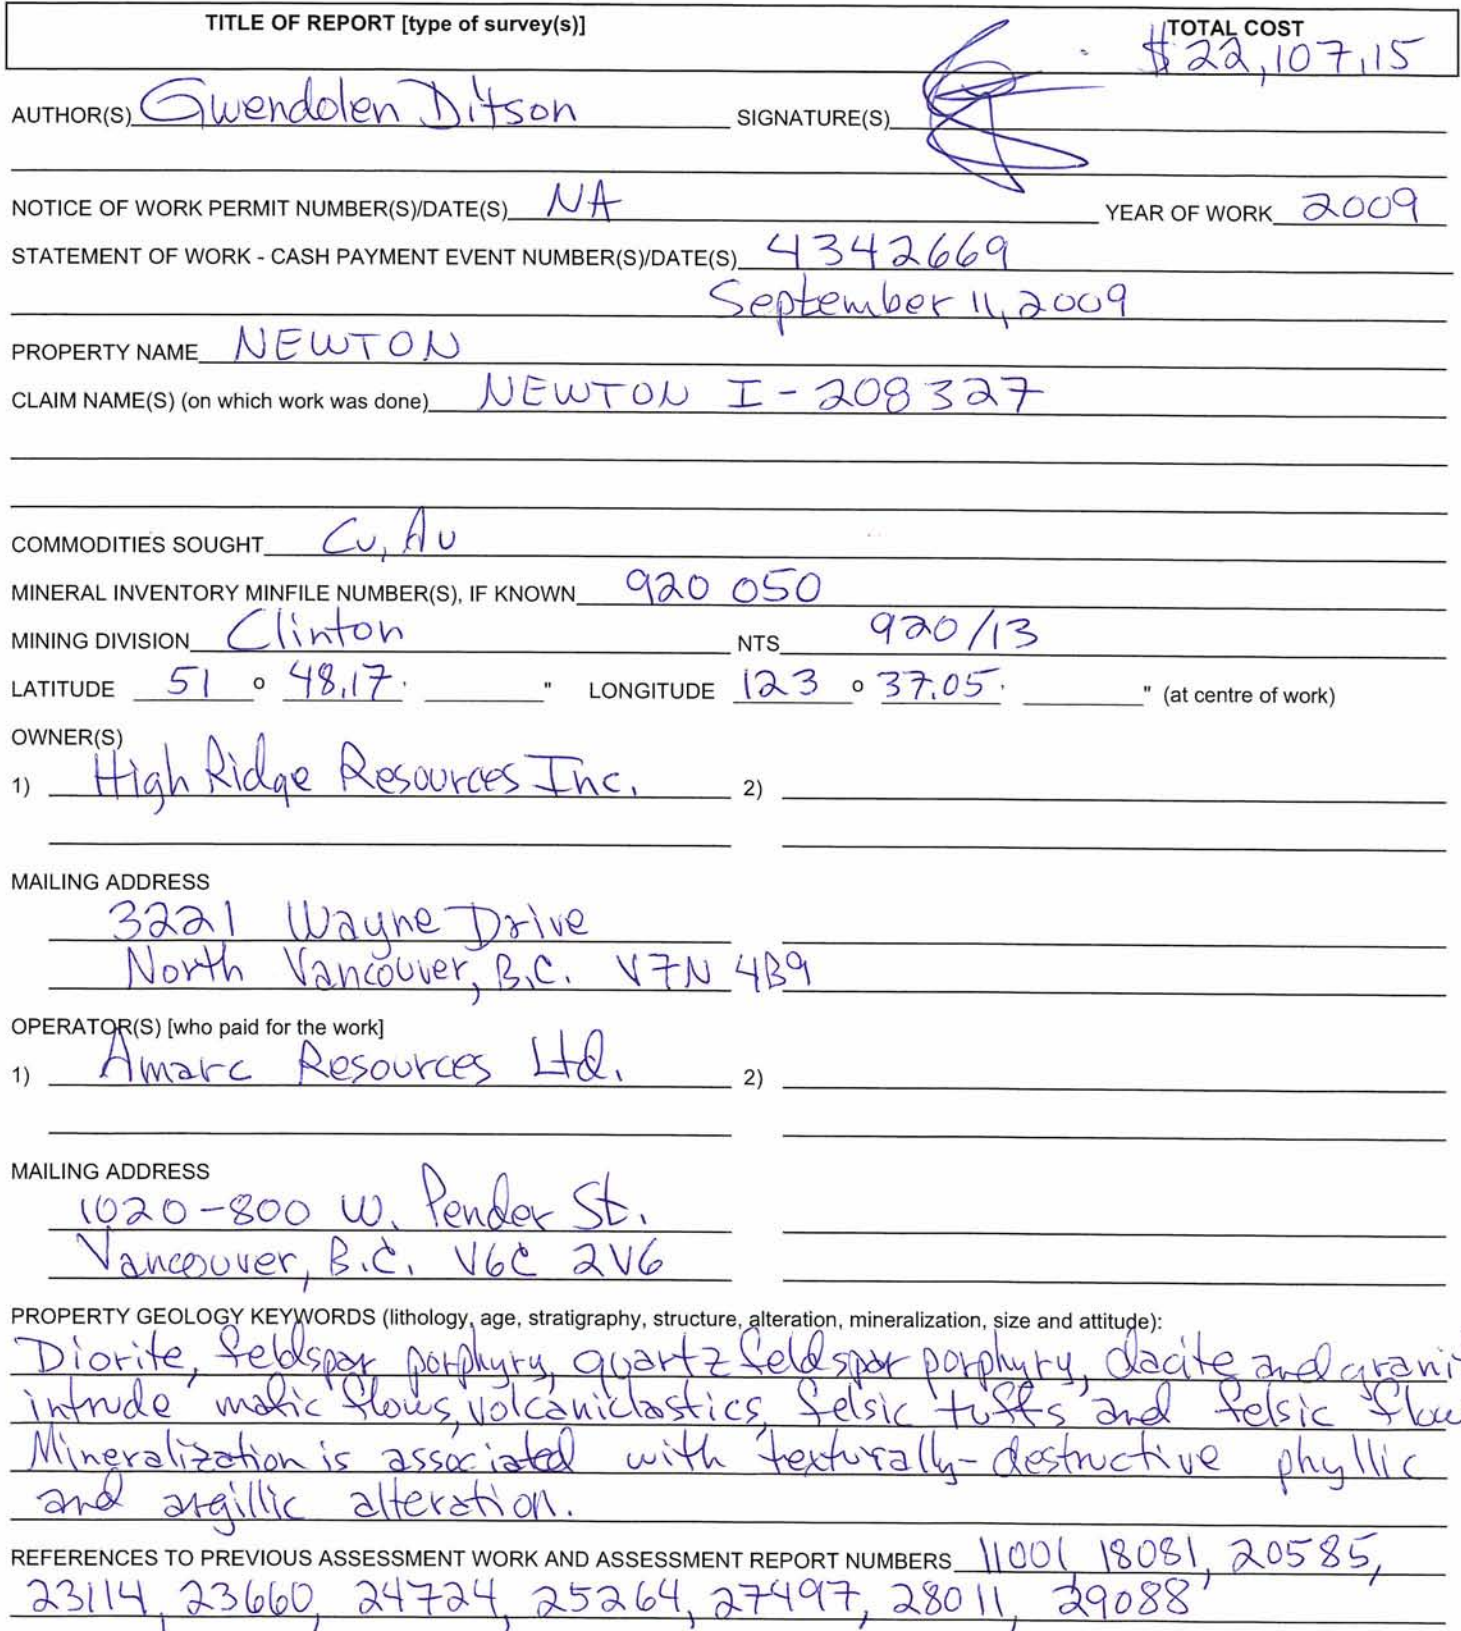 TITLE OF REPORT [type of survey(s)] TOTAL COST
$22,107.15
AUTHOR(S) Gwendolen Ditson SIGNATURE(S)
NOTICE OF WORK PERMIT NUMBER(S)/DATE(S) NA YEAR OF WORK 2009
STATEMENT OF WORK - CASH PAYMENT EVENT NUMBER(S)/DATE(S) 4342669
September 11, 2009
PROPERTY NAME NEWTON
CLAIM NAME(S) (on which work was done) NEWTON I - 208327
COMMODITIES SOUGHT Cu, Au
MINERAL INVENTORY MINFILE NUMBER(S), IF KNOWN 92O 050
MINING DIVISION Clinton NTS 92O/13
LATITUDE 51 o 48.17' " LONGITUDE 123 o 37.05' " (at centre of work)
OWNER(S)
1) High Ridge Resources Inc. 2)
MAILING ADDRESS
3221 Wayne Drive
North Vancouver, B.C. V7N 4B9
OPERATOR(S) [who paid for the work]
1) Amarc Resources Ltd. 2)
MAILING ADDRESS
1020-800 W. Pender St.
Vancouver, B.C. V6C 2V6
PROPERTY GEOLOGY KEYWORDS (lithology, age, stratigraphy, structure, alteration, mineralization, size and attitude):
Diorite, feldspar porphyry, quartz feldspar porphyry, dacite and grani
intrude mafic flows, volcaniclastics, felsic tuffs and felsic flow
Mineralization is associated with texturally-destructive phyllic
and argillic alteration.
REFERENCES TO PREVIOUS ASSESSMENT WORK AND ASSESSMENT REPORT NUMBERS 11001, 18081, 20585,
23114, 23660, 24724, 25264, 27497, 28011, 29088